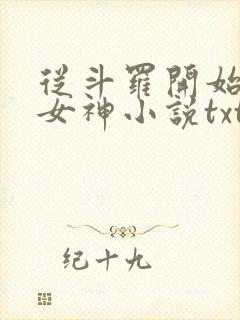 從斗羅開始
女神小説txt
纪十九